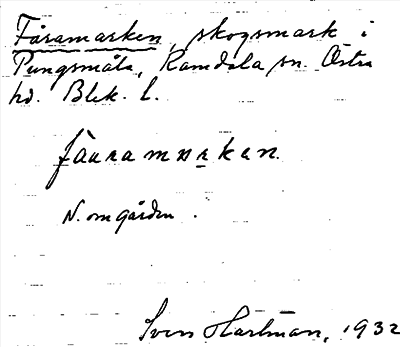 Fåramarken, skogsmark i
Pungsmåla, Ramdala sn. Östra
hd. Blek. l.
fàuramarkan.
N. om gården.
Sven Hartman, 1932